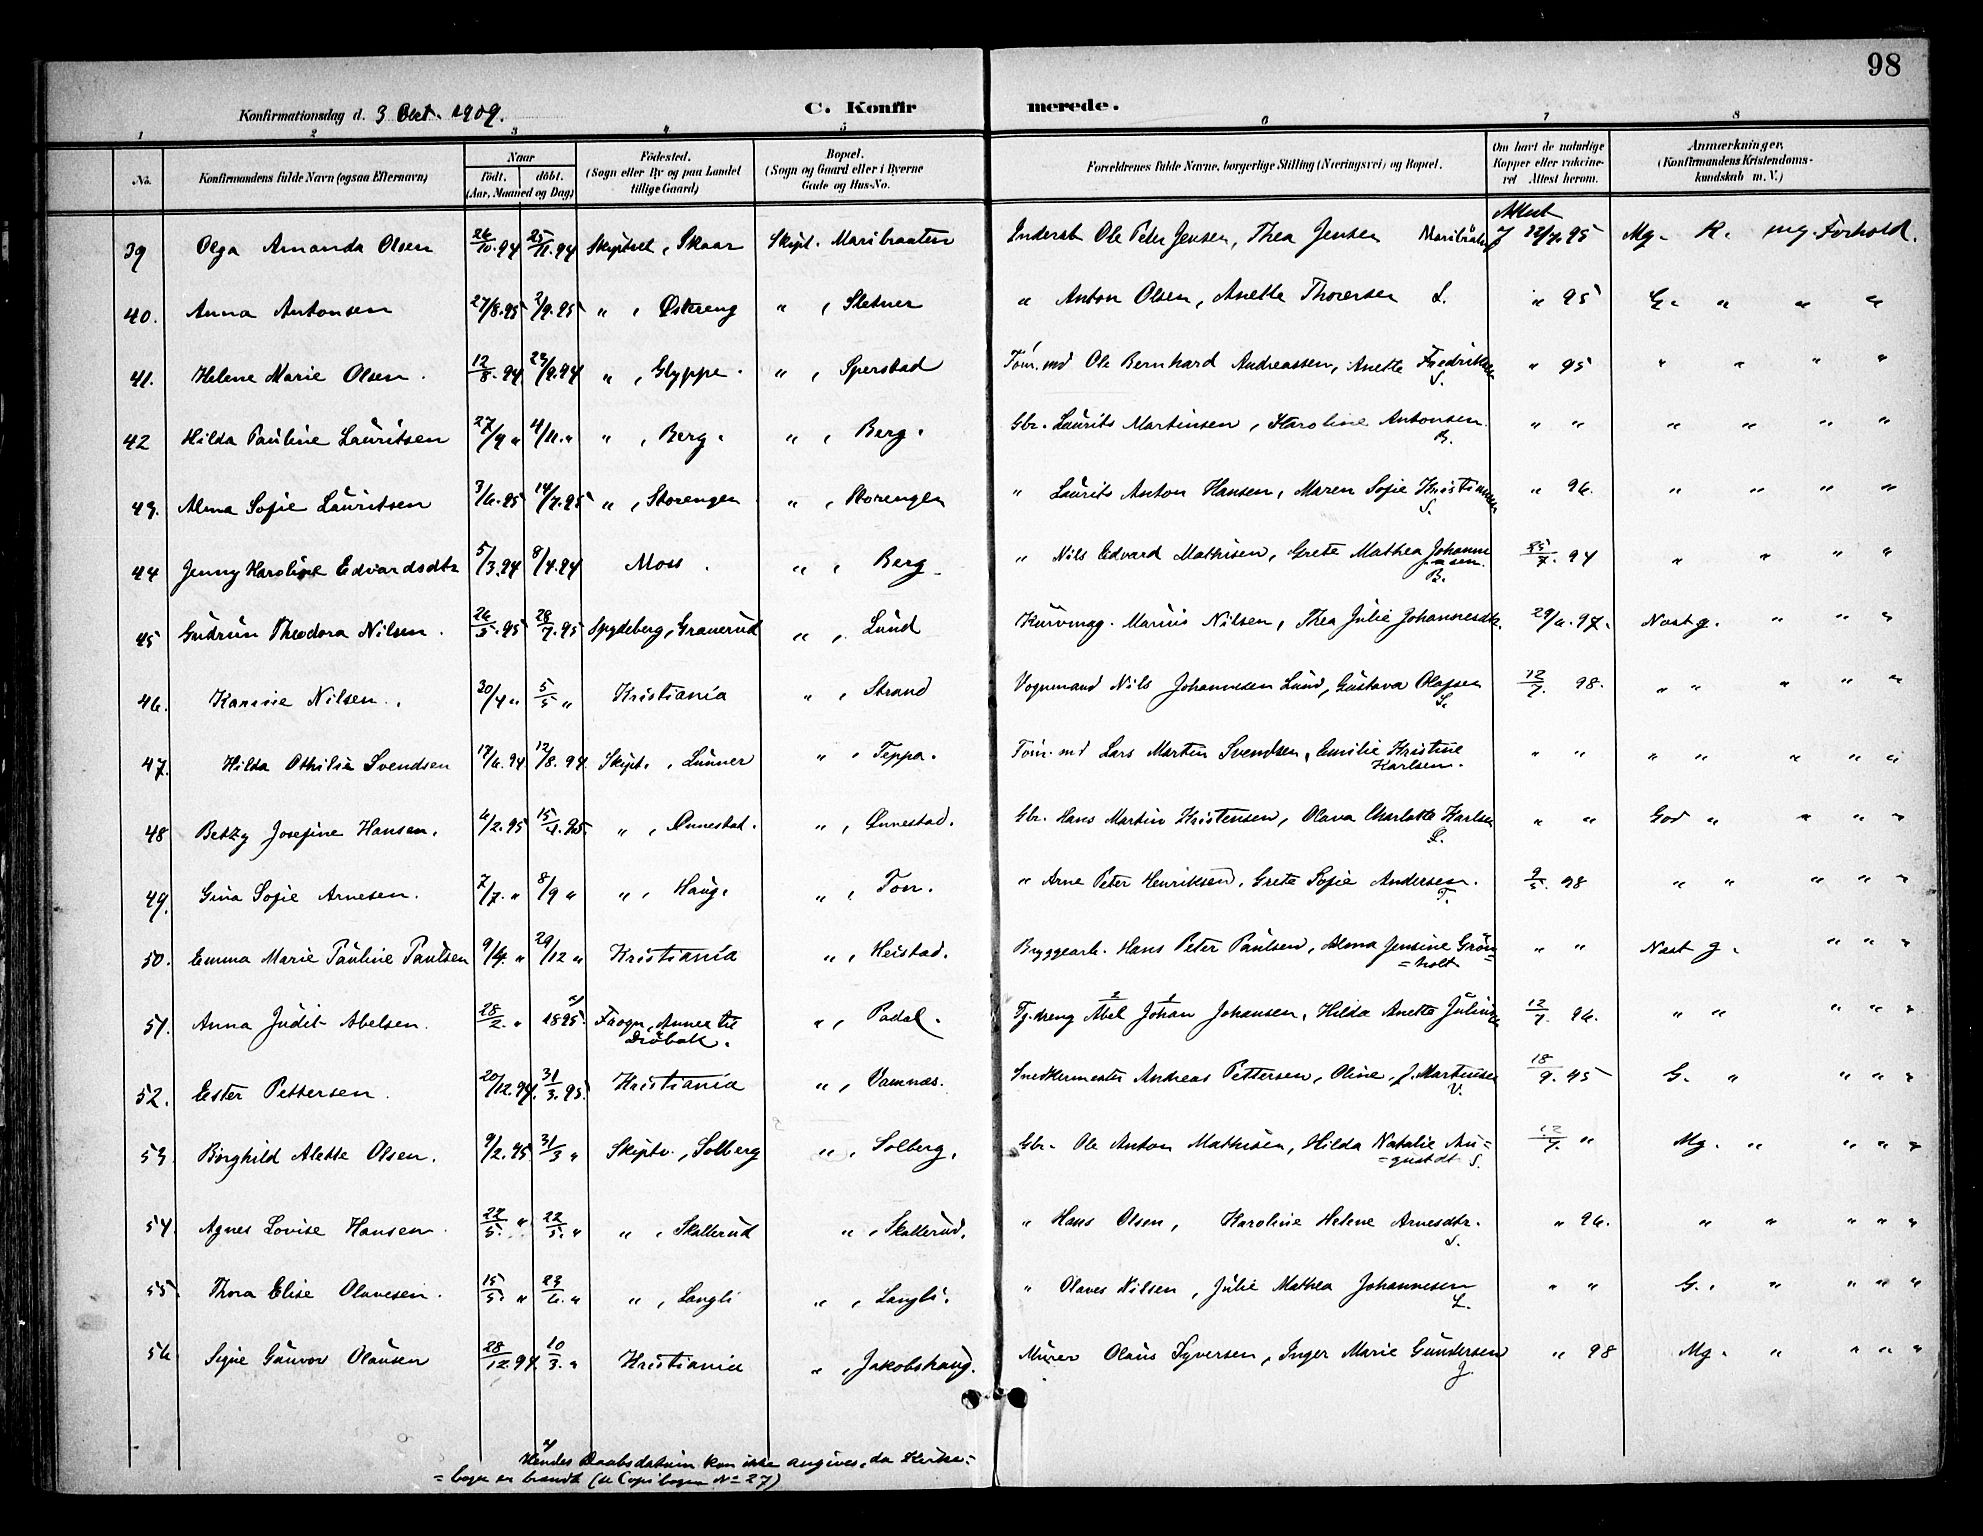 98
Konfirmationsdag d. 3 Oct. 1909.
C. Konfir merede.
1 2 3 4 5 6 7 8
No. Konfirmandens fulde Navn (ogsaa Efternavn) Naar födt. döbt. (Aar, Maaned og Dag) Födested. (Sogn eller By og paa Landet tillige Gaard) Bopæl. (Sogn og Gaard eller i Byerne Gade og Hus-No. Forældrenes fulde Navne, borgerlige Stilling (Næringsvei) og Bopæl. Om havt de naturlige Kopper eller vaccineret Attest herom. Anmærkninger, (Konfirmandens Kristendomskundskab m. V.)
39 Olga Amanda Olsen 26/10.94 25/11.94 Skiptvet, Skaar Skipt. Maribraaten Inderst Ole Peter Jensen, Thea Jensen Attest 95 Mg. K. mg. Forhold.
40. Anna Antonsen 27/8.95 2/9.95 " , Østereng " , Sletner " Anton Olsen, Anette Thorersen S. " 95 G. " " "
41. Helene Marie Olsen. 12/8.94 29/9.94 " , Glyppe. " , Sperstad Töm.md Ole Bernhard Andreassen, Anette Fredriksen S. " 95 " " " "
42 Hilda Pauline Lauritsen 27/9 " 4/11." " , Berg. " , Berg. Gbr. Laurits Martinsen, Karoline Antonsen. B. " " " " " "
43. Alma Sofie Lauritsen 3/6.95 14/7.95 " , Storengen " , Storengen " Laurits Anton Hansen, Maren Sofie Kristiansen S. " 96. " " " "
44 Jenny Karoline Edvardsdtr 5/3.94 8/4.94 Moss. " , Berg. " Nils Edvard Mathisen, Grete Mathea Johannesen. B. 25/7.94 " " " "
45 Gudrun Theodora Nilsen. 26/5.95 28/7.95 Spydeberg, Granerud " , Lund Kurvmag. Marius Nilsen, Thea Julie Johannesdtr. 29/6.97. Nast g. " " "
46. Karine Nilsen. 30/4 " 5/5 " Kristiania " , Strand Vognmand Nils Johannesen Lund, Gustava Olafsen S. 12/7. 98. " " " " "
47. Hilda Othilie Svendsen 17/6.94 12/8.94 Skipt., Lunner " , Teppa. Töm.md Lars Martin Svendsen, Emilie Kristine Karlsen. " " " " " " "
48 Betzy Josefine Hansen. 6/2.95 15/4.95 " , Onnestad. " , Onnestad. Gbr. Hans Martin Kristensen, Olava Charlotte Karlsen " " God " " " "
49. Gina Sofie Arnesen. 7/7." 8/9 " " , Haug. " , Ton. " Arne Peter Henriksen, Grete Sofie Andersen. T. 9/5. 98 " " " " "
50. Emma Marie Pauline Paulsen 9/4. " 29/12 " Kristiania " , Heistad. Bryggearb. Hans Peter Paulsen, Alma Jensine Grönholt " " Nast g. " " "
51. Anna Judit Abelsen. 28/2. " 1895. Frogn, Annex til Dröbak. " , Padal. Tj.dreng Abel Johan Johansen, Hilda Anette 12/7. 96. " " " " "
52. Ester Pettersen. 20/12.94. 31/3.95. Kristiania " , Vamnæs. Snedkermester Andreas Pettersen, Oline, J. Martinsen V. 18/9. 95 G. " " " "
53. Borghild Alette Olsen. 9/2.95. 31/3 " Skiptv., Solberg " , Solberg. Gbr. Ole Anton Mathisen, Hilda Natalie Au= =gustdt. S. 12/7. " Mg. " " " "
54. Agnes Lovise Hansen. 5. " 22/5. " " , Skallerud " , Skallerud. " Hans Olsen, Karoline Helene Arnesdtr. S. " 96. " " " " "
55. Thora Elise Olavesen. 15/5. " 23/6. " " , Langli " , Langli. " Olaves Nilsen, Julie Mathea Johannesen L. " " G. " " " "
56 Signe Gunvor Olausen 28/12.94. 10/3. " Kristiania " , Jakobshaug. Murer Olaus Syversen, Inger Marie Gundersen J. " 98 Mg. " " " "
Hendes Daabsdatum kan ikke angives, da Kirke=
=bogen er brændt (se Copibogen No 27)